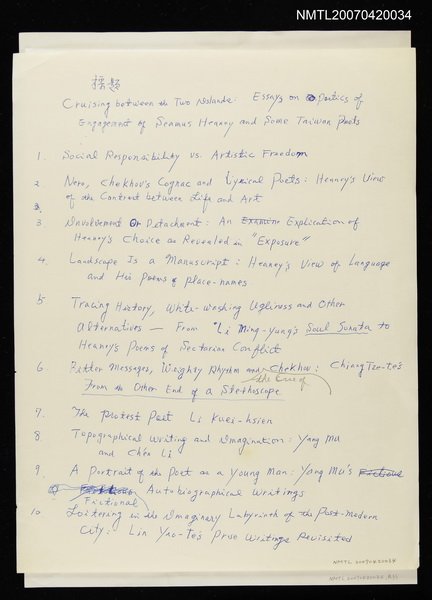 NMTL20070420034
Cruising between the Two Islands: Essays on Poetics of
Engagement of Seamus Heaney and Some Taiwan Poets
1. Social Responsibility vs. Artistic Freedom
2. Nero, Chekhov's Cognac and Lyrical Poets: Heaney's View
of the Contract between Life and Art
3.
3 Involvement Or Detachment: An Examine Explication of
Heaney's Choice as Revealed in "Exposure"
4. Landscape Is a Manuscript: Heaney's View of Language
and His Poems of place-names
5 Tracing History, White-washing Ugliness and Other
Alternatives — From Li Ming-yung's Soul Sonata to
Heaney's Poems of Sectarian Conflict
6. Bitter Messages, Weighty Rhythm and Chekhov: Chiang Tze-te's
the Case of
From the Other End of a Stethoscope
7. The Protest Poet Li Kuei-hsien
8. Topographical Writing and Imagination: Yang Mu
and Chen Li
9. A Portrait of the Poet as a Young Man: Yang Mu's Fictional
Autobiographical Writings
Fictional
10. Loitering in the Imaginary Labyrinth of the Post-Modern
City: Lin Yao-te's Prose Writings Revisited
NMTL20070420034